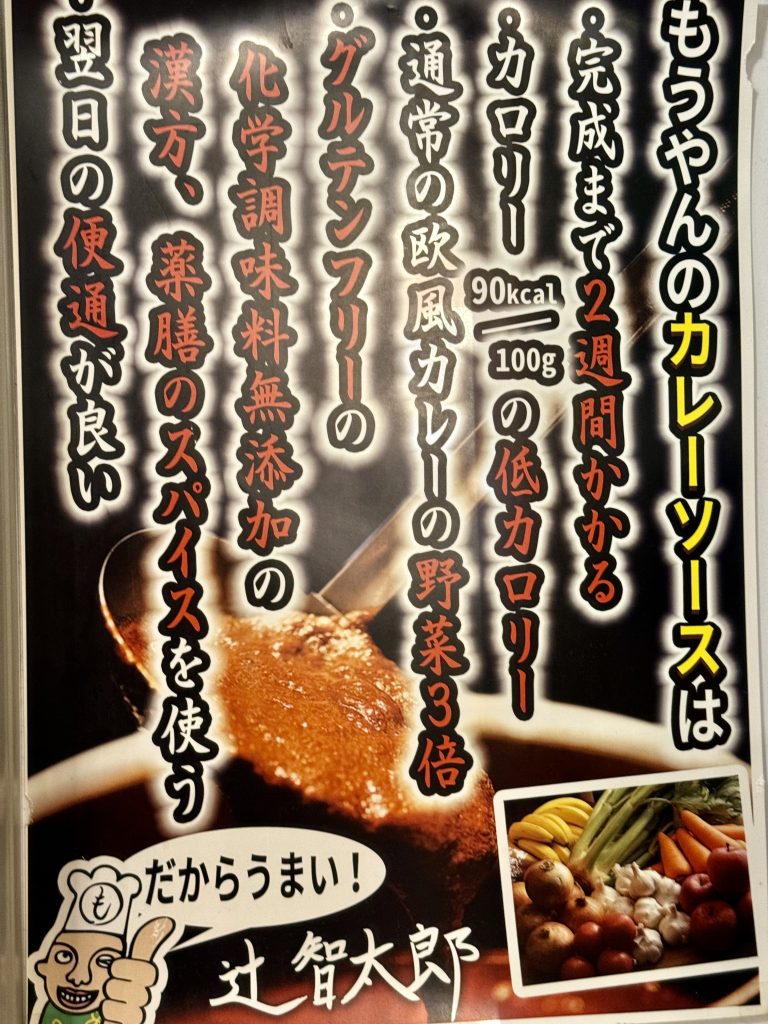 もうやんのカレーソースは
・完成まで2週間かかる
・カロリー90kcal/100gの低カロリー
・通常の欧風カレーの野菜3倍
・グルテンフリーの
化学調味料無添加の
漢方、薬膳のスパイスを使う
・翌日の便通が良い
だからうまい！
も
辻智太郎